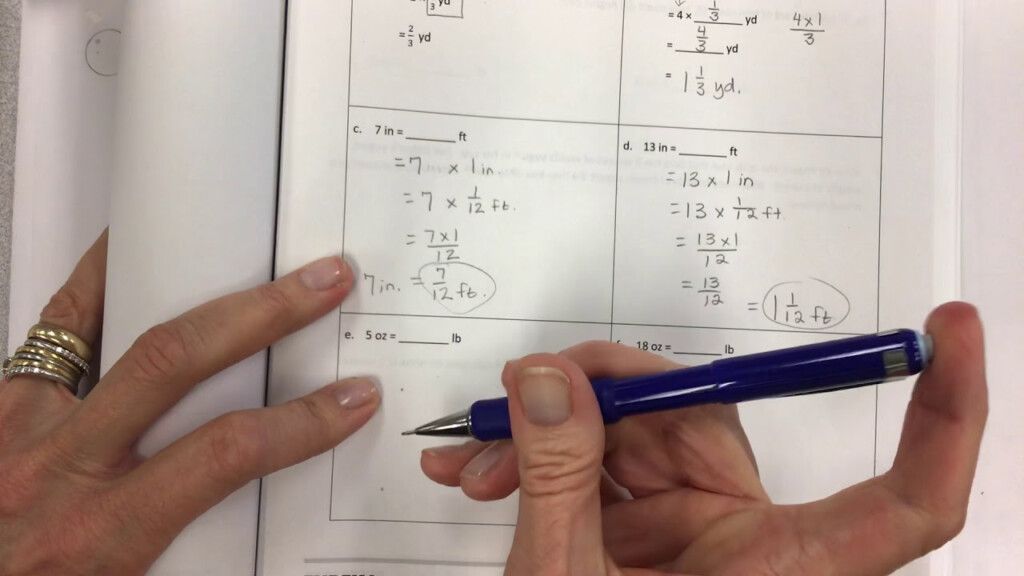 1/3 yd
= 2/3 yd
= 4 × 1/3 yd
4×1/3
= 4/3 yd
= 1 1/3 yd.
c. 7 in = ______ ft
= 7 × 1 in.
= 7 × 1/12 ft.
= 7×1/12
7 in. = 7/12 ft.
d. 13 in = ______ ft
= 13 × 1 in
= 13 × 1/12 ft
= 13×1/12
= 13/12
= 1 1/12 ft
e. 5 oz = ______ lb
18 oz = ______ lb